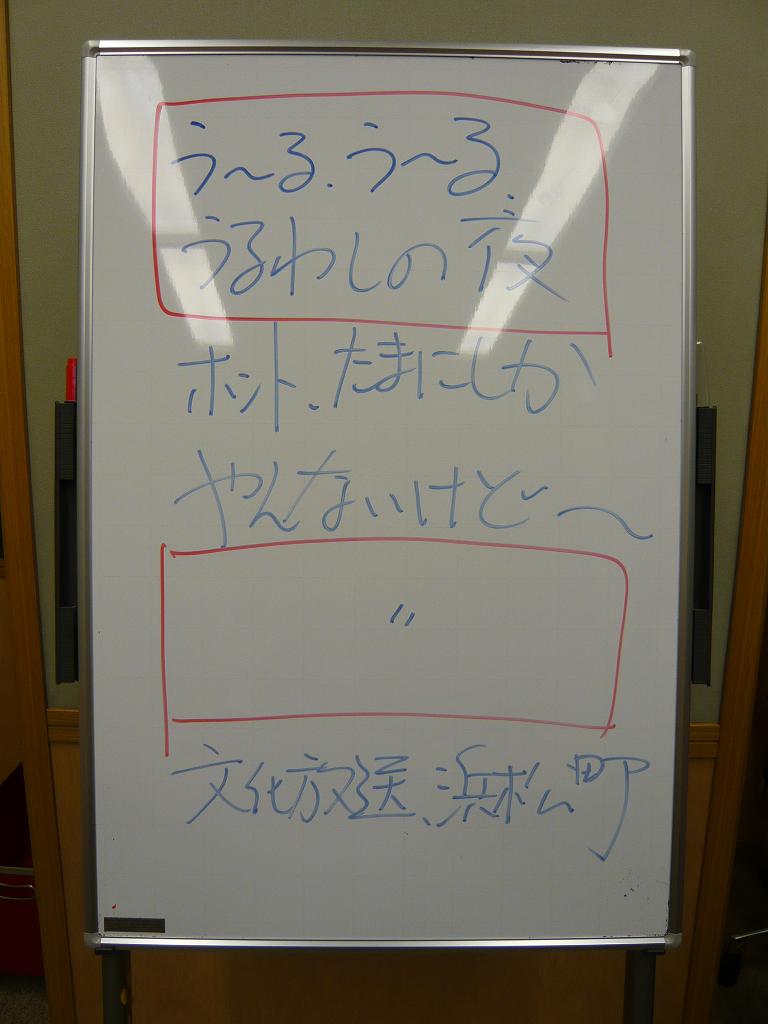 う〜る、う〜る
うるわしの夜
ホント、たまにしか
やんないけど〜
〃
文化放送、浜松町